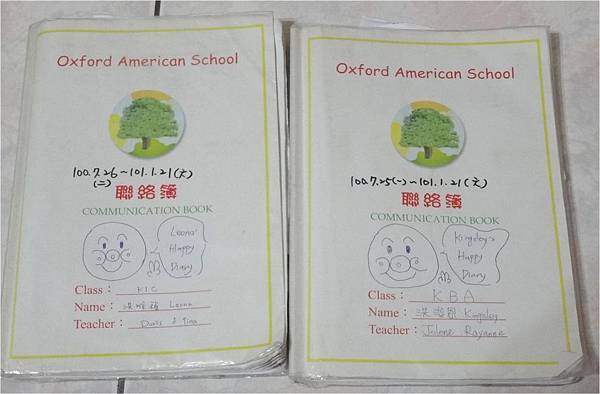 Oxford American School
100.7.26~101.1.21(六)
(二)
聯絡簿
COMMUNICATION BOOK
Leona'
Happy
Diary
Class: KIC
Name: Leona
Teacher: Doris & Tina
Oxford American School
100.7.25(一)~101.1.21(六)
聯絡簿
COMMUNICATION BOOK
Kingsley's
Happy
Diary
Class: KBA
Name: Kingsley
Teacher: Julene Rayanne